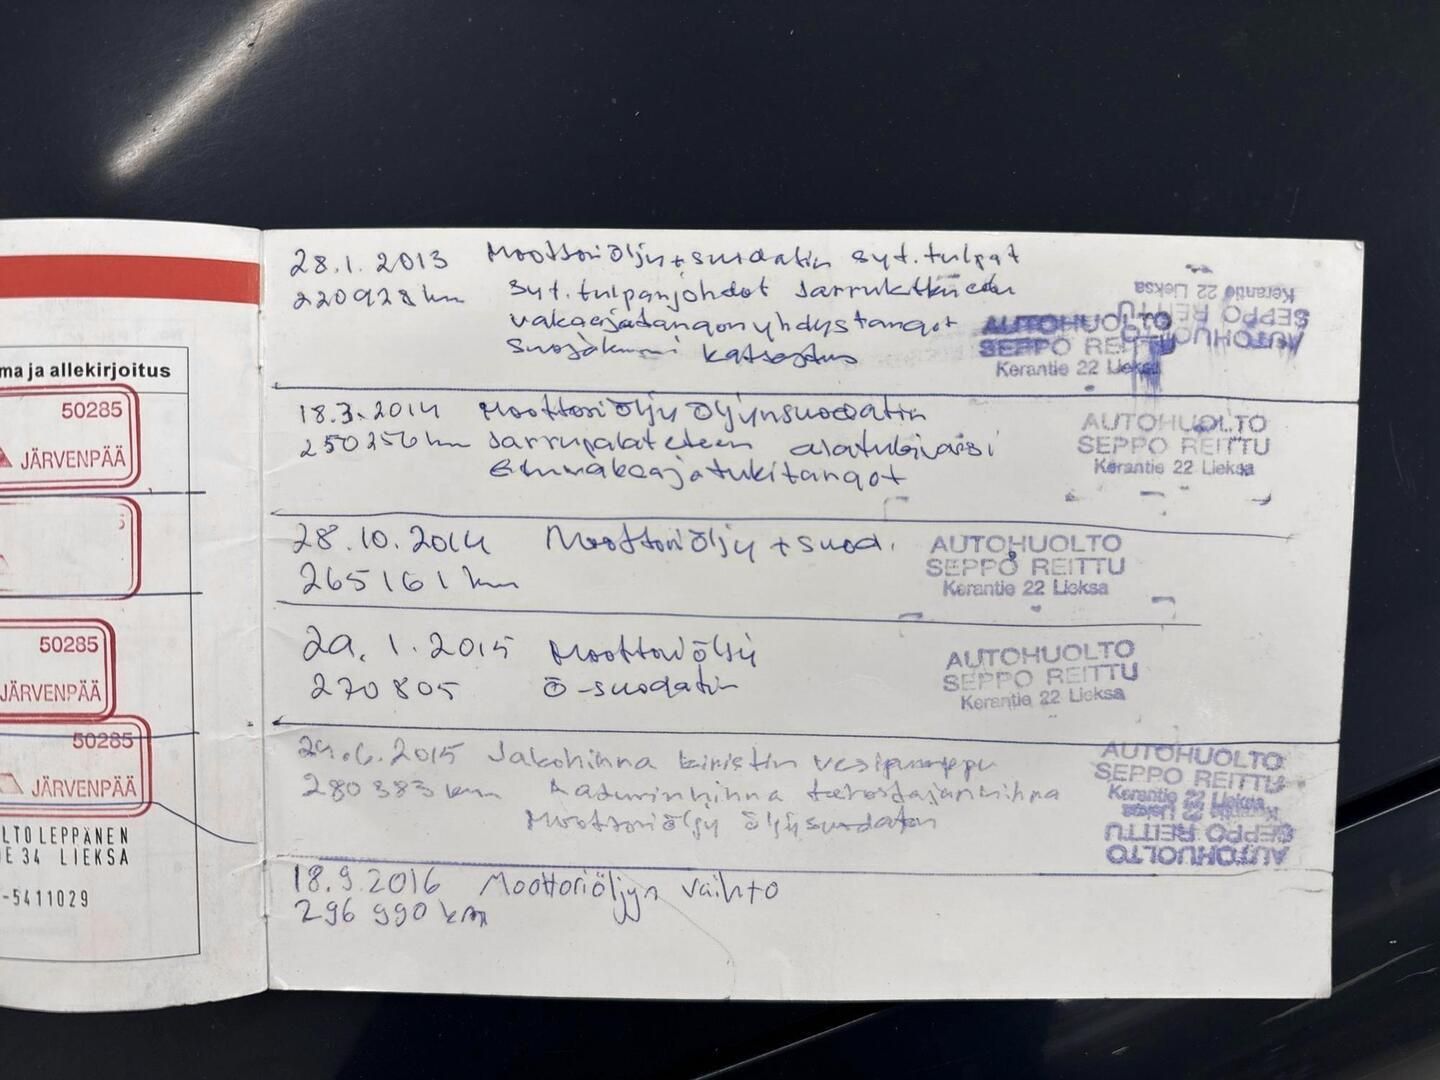 ma ja allekirjoitus
50285
JÄRVENPÄÄ
50285
JÄRVENPÄÄ
50285
JÄRVENPÄÄ
LTO LEPPÄNEN
E 34 LIEKSA
-5411029
28.1.2013 Moottoriöljy+suodatin syt.tulpat
220928 km syt.tulpanjohdot
vakaajatangon yhdystangot
suojakumi katsastus
AUTOHUOLTO
SEPPO REITTU
Kerantie 22 Lieksa
AUTOHUOLTO
SEPPO REITTU
Kerantie 22 Lieksa
18.3.2014 Moottoriöljy Öljynsuodatin
250256 km Jarrupalat eteen
Etuvakaajatukitangot
AUTOHUOLTO
SEPPO REITTU
Kerantie 22 Lieksa
28.10.2014 Moottoriöljy + suod.
265161 km
AUTOHUOLTO
SEPPO REITTU
Kerantie 22 Lieksa
29.1.2015 Moottoriöljy
270805 Ö-suodatin
AUTOHUOLTO
SEPPO REITTU
Kerantie 22 Lieksa
29.6.2015 Jakohihna kiristin vesipumppu
280383 km Laturinhihna
Moottoriöljy öljysuodatin
AUTOHUOLTO
SEPPO REITTU
Kerantie 22 Lieksa
Kerantie 22 Lieksa
SEPPO REITTU
AUTOHUOLTO
18.9.2016 Moottoriöljyn vaihto
296 990 km